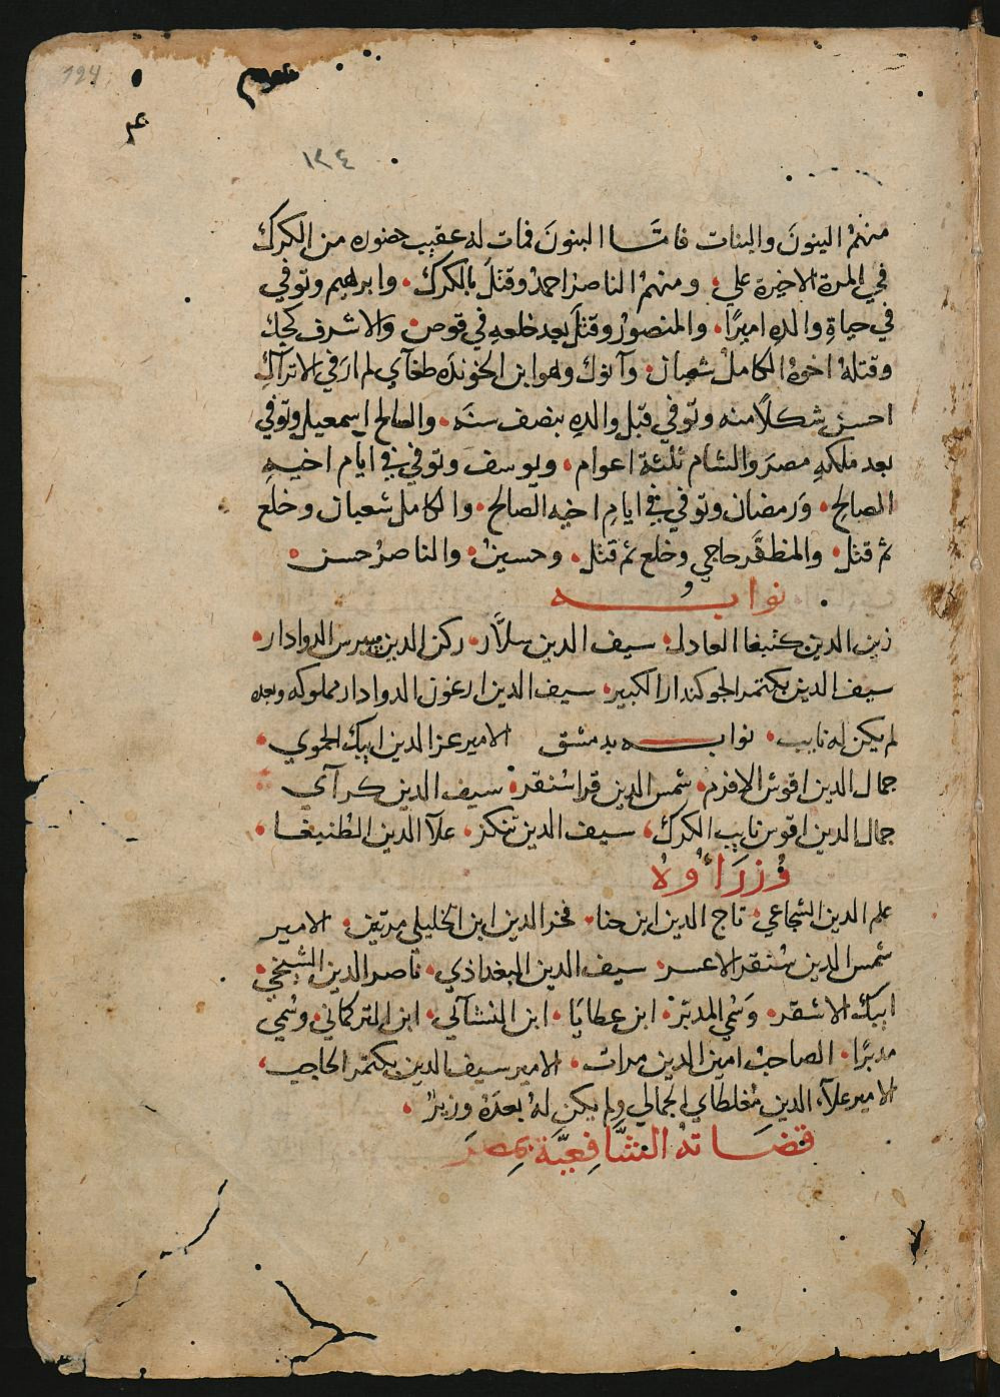 124
١٢٤
منهمُ البنونَ والبنات فامَّا البنونَ فمات له عقيب حضوره من الكرك
في المرة الاخيرة علي ومنهمُ الناصرُ احمدُ وقتل بالكرك وابرهيم وتوفي
في حياةِ والدهِ اميرًا والمنصورُ وقتلَ بعد خلعهِ في قوص والاشرف كجك
وقتلهُ اخوهُ الكاملُ شعبان وآنوك وهو ابن الخونده طغآي لم ار في الاتراك
احسن شكلًا منه وتوفي قبل والدهِ بنصف سنه والصالح اسمعيل وتوفي
بعد ملكهِ مصرَ والشام ثلثة اعوام ويوسف وتوفي في ايام اخيهِ
الصالحِ ورمضان وتوفي في ايامِ اخيه الصالح والكامل شعبان وخلع
ثم قتل والمظفَّر حاجي وخلع ثم قتل وحسينُ والناصرُ حسن
نوابه
زين الدين كتبغا العادل سيف الدين سلَّار ركن الدين بيبرس الدوادار
سيف الدين بكتمر الجوكندار الكبير سيف الدين ارغون الدوادار مملوكه وبعده
لم يكن له نايب نوابه بدمشق الامير عز الدين ايبك الحموي
جمال الدين اقوش الافرم شمس الدين قراسُنقر سيف الدين كرآي
جمال الدين اقوس نايب الكرك سيف الدين تنكز علآ الدين الطنبغا
وُزرَاؤُهُ
علم الدين الشجاعي تاج الدين ابن حنا فخر الدين ابن الخليلي مرتين الامير
شمس الدين سُنقر الاعسر سيف الدين البغداذي ناصر الدين الشيخي
ايبك الاشقر وَسُمي المدبّر ابن عطايَا ابن النشآلي ابن التركماني وسُمي
مدبرًا الصاحبُ امين الدين مرات الامير سيف الدين بكتمر الحاجب
الامير علآء الدين مُغلطاي الجمالي ولم يكن لهُ بعدَهُ وزيرٌ
قضاتهُ الشَّافِعِيَّة بمِصرَ